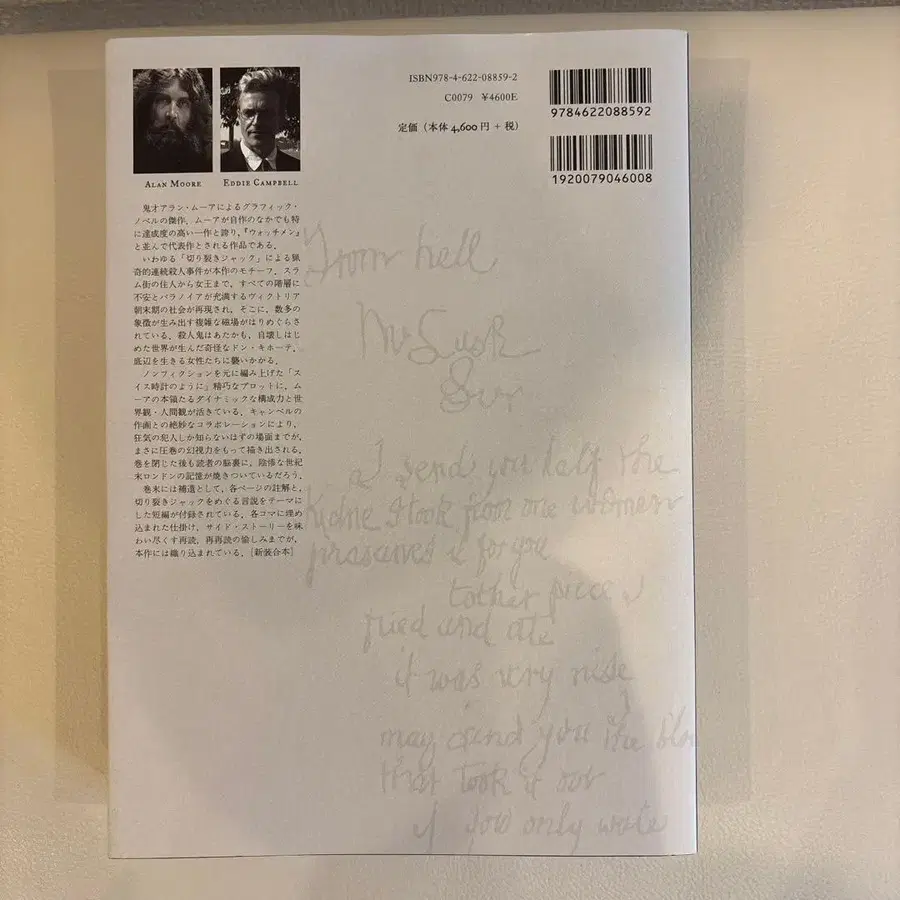 ALAN MOORE
EDDIE CAMPBELL
ISBN978-4-622-08859-2
C0079 ¥4600E
定価（本体 4,600 円 + 税）
9784622088592
1920079046008
鬼才アラン・ムーアによるグラフィック・
ノベルの傑作．ムーアが自作のなかでも特
に達成度の高い一作と誇り，『ウォッチメン』
と並んで代表作とされる作品である．
いわゆる「切り裂きジャック」による猟
奇的連続殺人事件が本作のモチーフ．スラ
ム街の住人から女王まで，すべての階層に
不安とパラノイアが充満するヴィクトリア
朝末期の社会が再現され，そこに，数多の
象徴が生み出す複雑な磁場がはりめぐらさ
れている．殺人鬼はあたかも，自壊しはじ
めた世界が生んだ奇怪なドン・キホーテ．
底辺を生きる女性たちに襲いかかる．
ノンフィクションを元に編み上げた「ス
イス時計のように」精巧なプロットに，ム
ーアの本領たるダイナミックな構成力と世
界観・人間観が活きている．キャンベルの
作画との絶妙なコラボレーションにより，
狂気の犯人しか知らないはずの場面までが，
まさに圧巻の幻視力をもって描き出される．
巻を閉じた後も読者の脳裏に，陰惨な世紀
末ロンドンの記憶が焼きついているだろう．
巻末には補遺として，各ページの註解と，
切り裂きジャックをめぐる言説をテーマに
した短編が付録されている．各コマに埋め
込まれた仕掛け，サイド・ストーリーを味
わい尽くす再読，再再読の愉しみまでが，
本作には織り込まれている．［新装合本］
From hell
Mr Lusk
Sor
I send you half the
Kidne I took from one women
prasarved it for you
tother piece I
fried and ate
it was very nise
may send you the blo
that took it out
if you only wate